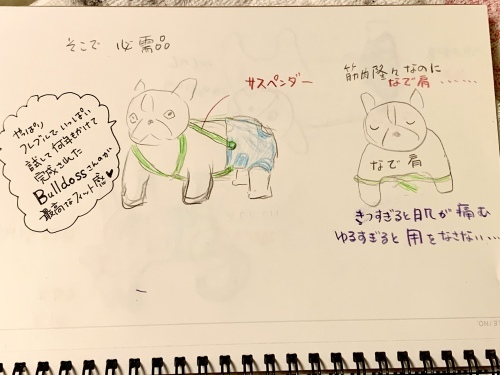 そこで 必需品
サスペンダー
やっぱり
フレブルでいっぱい
試して何年もかけて
完成された
Bulldossさんのが
最高なフィット感♥
筋肉隆々なのに
なで肩......
なで肩
きつすぎると肌が痛む
ゆるすぎると用をなさない...